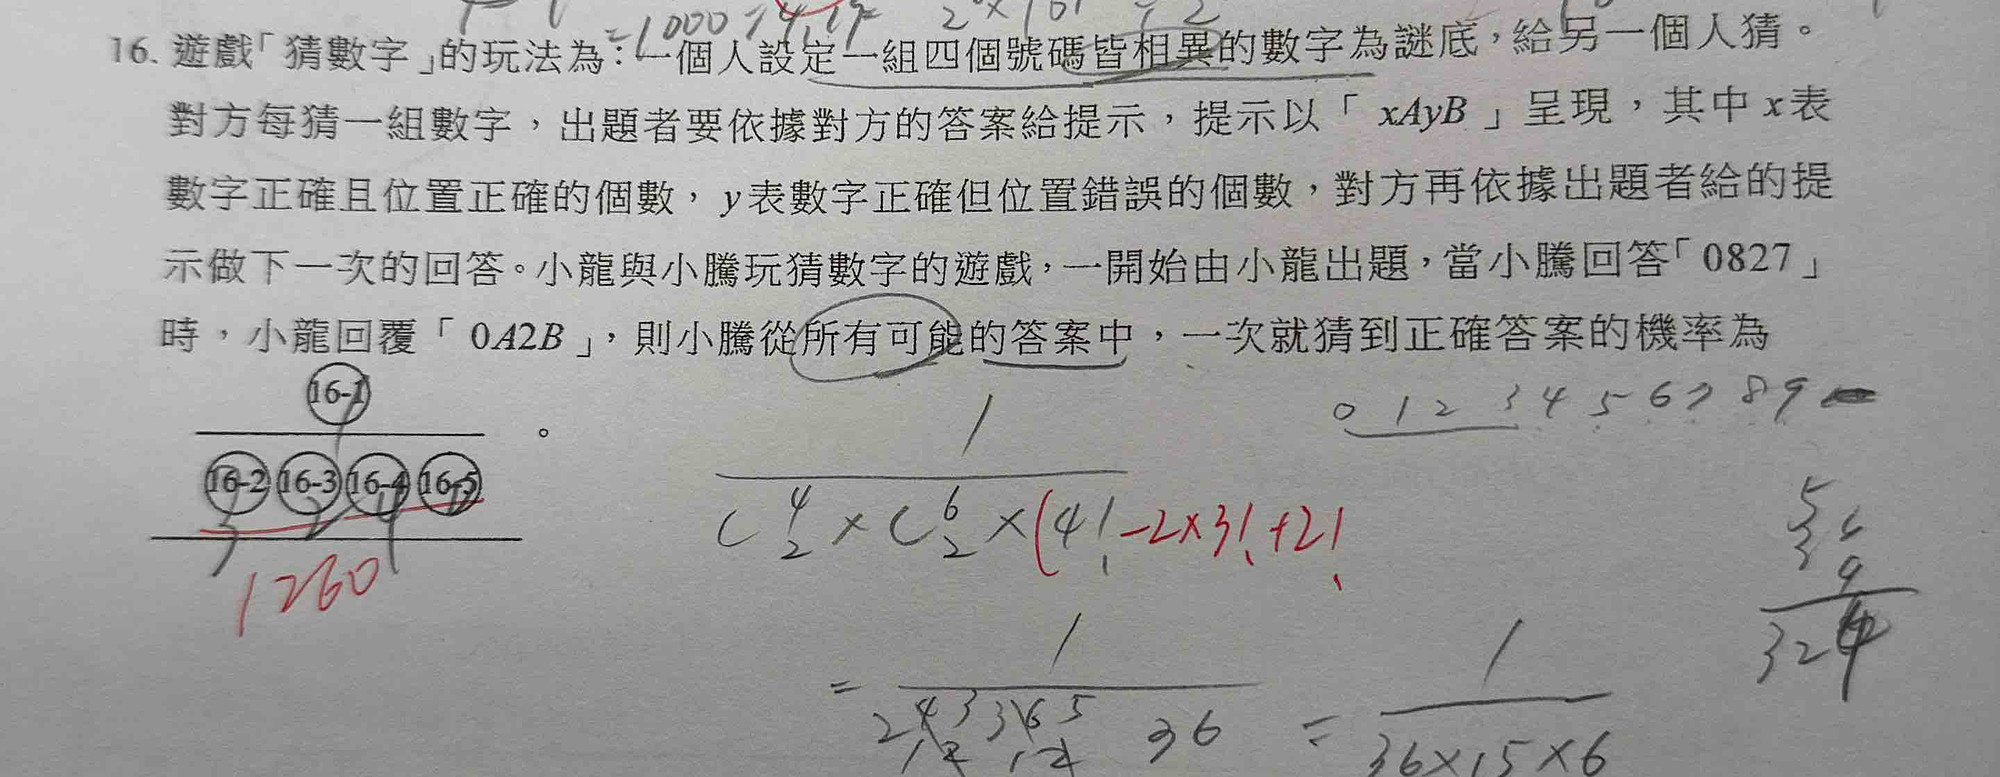 =1000
16. 遊戲「猜數字」的玩法為：一個人設定一組四個號碼皆相異的數字為謎底，給另一個人猜。
對方每猜一組數字，出題者要依據對方的答案給提示，提示以「 xAyB 」呈現，其中 x 表
數字正確且位置正確的個數，y 表數字正確但位置錯誤的個數，對方再依據出題者給的提
示做下一次的回答。小龍與小騰玩猜數字的遊戲，一開始由小龍出題，當小騰回答「 0827 」
時，小龍回覆「 0A2B 」，則小騰從所有可能的答案中，一次就猜到正確答案的機率為
16-1
16-2 16-3 16-4 16-5 。
1260
0 1 2 3 4 5 6 7 8 9
1
C 4 2 × C 6 2 × (4! -2×3! +2!
= 1
36
= 1
36×15×6
324